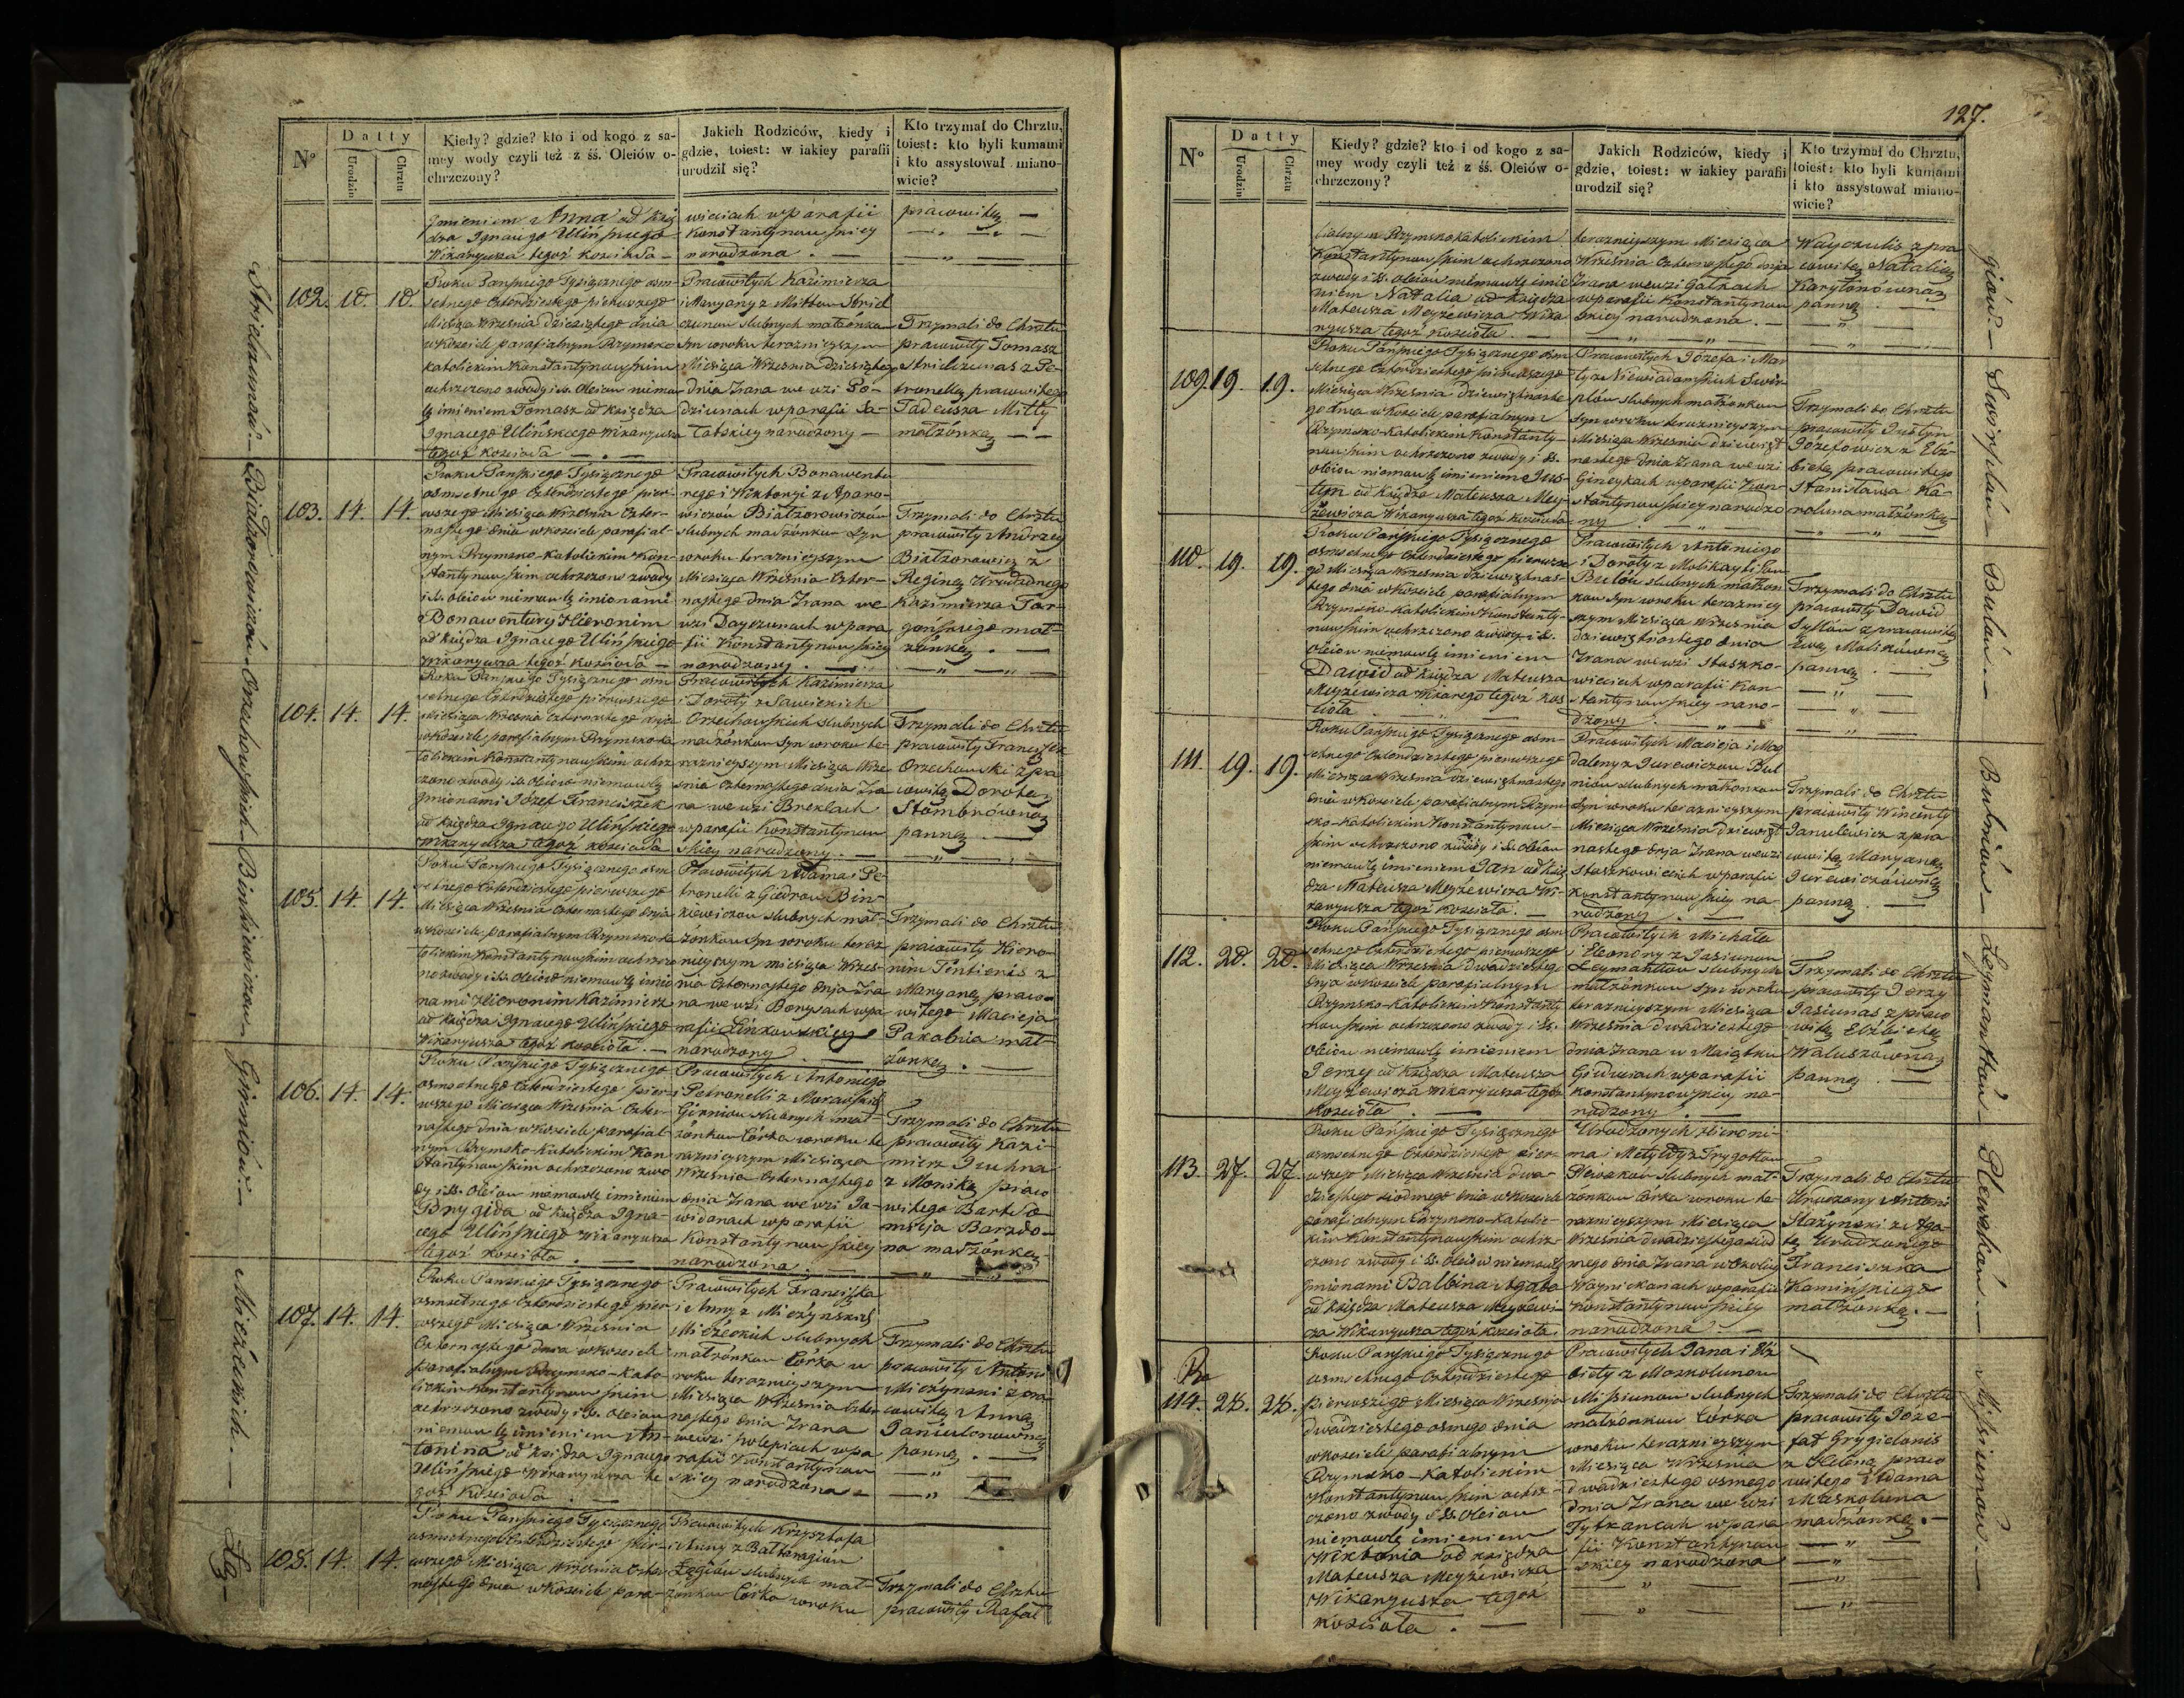 N°
Datty
Urodzin
Chrztu
Kiedy? gdzie? kto i od kogo z sa-
mey wody czyli też z śś. Oleiów o-
chrzczony?
Jakich Rodziców, kiedy i
gdzie, toiest: w iakiey parafii
urodził się?
Kto trzymał do Chrztu,
toiest: kto byli kumami
i kto assystował miano-
wicie?
Imieniem Anna od Xię
dza Ignacego Ulińskiego
Wikaryusza tegoż Kościoła —
wieciach w parafii
Konstantynowskiey
narodzona . —
pracowitey —
102. 10. 10.
Roku Pańskiego Tysiącznego osm
setnego Czterdziestego pierwszego
Miesiąca Września dziesiątego dnia
w Kościele parafialnym Rzymsko
Katolickim Konstantynowskim
ochrzczono z wody i śś. Oleiow niemo
lę imieniem Tomasz od Księdza
Ignacego Ulińskiego Wikaryusza
tegoż Kościoła —
Pracowitych Kazimierza
i Maryany z Mitłow Strid
czunow slubnych małżonkow
Syn w roku teraznieyszym
Miesiąca Września dziesiątego
dnia Zrana we wsi Po-
dziunach w parafii Ła-
bskiey narodzony —
Trzymali do Chrztu
pracowity Tomasz
Stridczunas z Pe-
tronellą pracowitego
Tadeusza Mitły
małżonką — —
103. 14. 14.
Roku Pańskiego Tysiącznego
osmsetnego Czterdziestego pier-
wszego Miesiąca Września Czter-
nastego dnia w Kościele parafial-
nym Rzymsko-Katolickim Kon-
stantynowskim ochrzczono z wody
i ś. oleiow niemowlę imionami
Bonawentury Hieronim
od Księdza Ignacego Ulińskiego
Wikaryusza tegoż Kościoła —
Pracowitych Bonawentu
rego i Wiktoryi z Aparo-
wiczow Białłozorowiczow
slubnych małżonkow Syn
w roku teraznieyszym
Miesiąca Września Czter-
nastego dnia Zrana we
wsi Dayczunach w para
fii Konstantynowskiey
narodzony . —
Trzymali do Chrztu
pracowity Andrzey
Białłozorowicz z
Reginą Urodzonego
Kazimierza Tar-
gońskiego mał-
żonką . —
104. 14. 14.
Roku Pańskiego Tysiącznego osm
setnego Czterdziestego pierwszego
Miesiąca Września Czternastego dnia
w Kościele parafialnym Rzymsko Ka
tolickim Konstantynowskim ochrz
czono z wody i ś. Oleiow niemowlę
Imionami Józef Franciszek
od Księdza Ignacego Ulińskiego
Wikaryusza tegoż Kościoła
Pracowitych Kazimierza
i Doroty z Sawickich
Orzechowskich slubnych
małżonkow Syn w roku te-
raznieyszym Miesiąca Wrze
snia Czternastego dnia Zra
na we wsi Breklach
w parafii Konstantynow
skiey narodzony . —
Trzymali do Chrztu
pracowity Franciszek
Orzechowski z pra
cowitą Dorotą
Stombrówną
panną . —
105. 14. 14.
Roku Pańskiego Tysiącznego osm
setnego Czterdziestego pierwszego
Miesiąca Września Czternastego dnia
w Kościele parafialnym Rzymsko Ka
tolickim Konstantynowskim ochrzczo
no z wody i ś. Oleiow niemowlę imio
nami Hieronim Kazimierz
od Księdza Ignacego Ulińskiego
Wikaryusza tegoż Kościoła . —
Pracowitych Adama i Pe
tronelli z Giedrow Bin-
kiewiczow slubnych mał-
żonkow Syn w roku teraz
nieyszym miesiąca Wrzes-
nia Czternastego dnia Zra
na we wsi Borysach w pa
rafii Łinkowskiey
narodzony . —
Trzymali do Chrztu
pracowity Hiero-
nim Pentienis z
Maryaną praco-
witego Macieja
Pakalnia mał-
żonką . —
106. 14. 14.
Roku Pańskiego Tysiącznego
osmsetnego Czterdziestego pier-
wszego Miesiąca Września Czter-
nastego dnia w Kościele parafial-
nym Rzymsko-Katolickim Kon
stantynowskim ochrzczono z wo
dy i ś. Oleiow niemowlę imieniem
Brygida od Księdza Igna-
cego Ulińskiego Wikaryusza
tegoż Kościoła . —
Pracowitych Antoniego
i Petronelli z Morawskich
Girniow slubnych mał-
żonkow Córka w roku te
raznieyszym Miesiąca
Września Czternastego
dnia Zrana we wsi Ja-
widanach w parafii
Konstantynowskiey
narodzona . —
Trzymali do Chrztu
pracowity Kazi-
mierz Juchna
z Moniką praco
witego Bartło-
mieja Barzdo-
na małżonką —
107. 14. 14.
Roku Pańskiego Tysiącznego
osmsetnego Czterdziestego pier
wszego Miesiąca Września
Czternastego dnia w Kościele
parafialnym Rzymsko-Kato-
lickim Konstantynowskim
ochrzczono z wody i ś. Oleiow
niemowlę imieniem An-
tonina od Księdza Ignacego
Ulińskiego Wikaryusza te
goż Kościoła . —
Pracowitych Franciszka
i Anny z Mieżynskich
Mieżeckich slubnych
małżonkow Córka w
roku teraznieyszym
Miesiąca Września Czter
nastego dnia Zrana
we wsi Polepiach w pa
rafii Konstantynow
skiey narodzona —
Trzymali do Chrztu
pracowity Antoni
Mieżynski z pra
cowitą Anną
Janiulonowną
panną . —
108. 14. 14.
Roku Pańskiego Tysiącznego
osmsetnego Czterdziestego pier-
wszego Miesiąca Września Czter
nastego dnia w Kościele para-
Pracowitych Krzysztofa
i Anny z Baltaragiow
Łęgiow slubnych mał-
żonkow Córka w roku
Trzymali do Chrztu
pracowity Rafał
Stridczunow. — Białłozorowiczow — Orzechowskich — Binkiewiczow — Girniow. — Mieżeckich. — Łę-
127.
N°
Datty
Urodzin
Chrztu
Kiedy? gdzie? kto i od kogo z sa-
mey wody czyli też z śś. Oleiów o-
chrzczony?
Jakich Rodziców, kiedy i
gdzie, toiest: w iakiey parafii
urodził się?
Kto trzymał do Chrztu,
toiest: kto byli kumami
i kto assystował miano-
wicie?
fialnym Rzymsko Katolickim
Konstantynowskim ochrzczono
z wody i ś. oleiow niemowlę imie
niem Natalia od Księdza
Mateusza Meyżewicza Wika
ryusza tegoż Kościoła . —
teraznieyszym Miesiąca
Września Czternastego dnia
Zrana we wsi Gałkach
w parafii Konstantynow
skiey narodzona . —
Wayczulis z pra
cowitą Natalią
Karytonówną
panną . —
109. 19. 19.
Roku Pańskiego Tysiącznego osm
setnego Czterdziestego pierwszego
Miesiąca Września dziewiętnaste
go dnia w Kościele parafialnym
Rzymsko-Katolickim Konstanty-
nowskim ochrzczono z wody i ś.
oleiow niemowlę imieniem Jus-
tyn od Księdza Mateusza Mey-
żewicza Wikaryusza tegoż Kościoła
Pracowitych Józefa i Mar
ty z Niewiadomskich Swir-
plow slubnych małżonkow
Syn w roku teraznieyszym
Miesiąca Września dziewięt
nastego dnia Zrana we wsi
Gineykach w parafii Kon-
stantynowskiey narodzo
ny —
Trzymali do Chrztu
pracowity Justyn
Józefowicz z Elż-
bietą pracowitego
Stanisława Ka-
roluna małżonką
110. 19. 19.
Roku Pańskiego Tysiącznego
osmsetnego Czterdziestego pierwsze
go Miesiąca Września dziewiętnas-
tego dnia w Kościele parafialnym
Rzymsko-Katolickim Konstanty-
nowskim ochrzczono z wody i ś.
Oleiow niemowlę imieniem
Dawid od Księdza Mateusza
Meyżewicza Wikarego tegoż Koś
cioła
Pracowitych Antoniego
i Doroty z Molikaytisow
Bulow slubnych małżon
kow Syn w roku terazniey
szym Miesiąca Września
dziewiętnastego dnia
Zrana we wsi Staszko-
wieciach w parafii Kon
stantynowskiey naro-
dzony . —
Trzymali do Chrztu
pracowity Dawid
Syłłow z pracowitą
Ewą Molikówną
panną . —
111. 19. 19.
Roku Pańskiego Tysiącznego osm-
setnego Czterdziestego pierwszego
Miesiąca Września dziewiętnastego
dnia w Kościele parafialnym Rzym-
sko-Katolickim Konstantynow-
skim ochrzczono z wody i ś. Oleiow
niemowlę imieniem Jan od Xię
dza Mateusza Meyżewicza Wi-
karyusza tegoż Kościoła. —
Pracowitych Macieja i Mag
daleny z Jurewiczow Bul
niow slubnych małżonkow
Syn w roku teraznieyszym
Miesiąca Września dziewięt
nastego dnia Zrana we wsi
Staszkowieciach w parafii
Konstantynowskiey na-
rodzony . —
Trzymali do Chrztu
pracowity Wincenty
Janulewicz z pra
cowitą Maryanną
Jurewiczówną
panną . —
112. 20. 20.
Roku Pańskiego Tysiącznego osm
setnego Czterdziestego pierwszego
Miesiąca Września dwudziestego
dnia w Kościele parafialnym
Rzymsko-Katolickim Konstanty
nowskim ochrzczono z wody i ś.
Oleiow niemowlę imieniem
Jerzy od Księdza Mateusza
Meyżewicza Wikaryusza tegoż
Kościoła . —
Pracowitych Michała
i Eleonory z Jasiunow
Leymanttow slubnych
małżonkow Syn w roku
teraznieyszym Miesiąca
Września dwudziestego
dnia Zrana w Maiątku
Giduciach w parafii
Konstantynowskiey na-
rodzony . —
Trzymali do Chrztu
pracowity Jerzy
Jasiunas z praco
witą Elżbietą
Waluszówną
panną . —
113. 27. 27.
Roku Pańskiego Tysiącznego
osmsetnego Czterdziestego pier-
wszego Miesiąca Września dwu-
dziestego siodmego dnia w Kościele
parafialnym Rzymsko-Katolic-
kim Konstantynowskim ochrz-
czono z wody i ś. Oleiow niemowlę
Imionami Balbina Agata
od Księdza Mateusza Meyżewi-
cza Wikaryusza tegoż Kościoła
Urodzonych Hieroni-
ma i Matyldy z Frygottow
Plewakow slubnych mał-
żonkow Córka w roku te-
raznieyszym Miesiąca
Września dwudziestego siod
mego dnia Zrana w Okolicy
Woynickanach w parafii
Konstantynowskiey
narodzona . —
Trzymali do Chrztu
Urodzony Antoni
Stażynski z Aga-
tą Urodzonego
Franciszka
Kamińskiego
małżonką. —
Ro
114. 28. 28.
Roku Pańskiego Tysiącznego
osmsetnego Czterdziestego
pierwszego Miesiąca Września
dwudziestego osmego dnia
w Kościele parafialnym
Rzymsko-Katolickim
Konstantynowskim ochrz-
czono z wody i śś. Oleiow
niemowlę imieniem
Wiktoria od Księdza
Mateusza Meyżewicza
Wikaryusza tegoż
Kościoła . —
Pracowitych Jana i Elż
biety z Moskolunow
Missiunow slubnych
małżonkow Córka
w roku teraznieyszym
Miesiąca Września
dwudziestego osmego
dnia Zrana we wsi
Tytkancach w para
fii Konstantynow
skiey narodzona
Trzymali do Chrztu
pracowity Józe-
fat Grygielonis
z Heleną praco
witego Adama
Maskoluna
małżonką. —
giow. — Swirplow — Bulow. — Bulniow — Leymanttow — Plewakow. — Missiunow. —